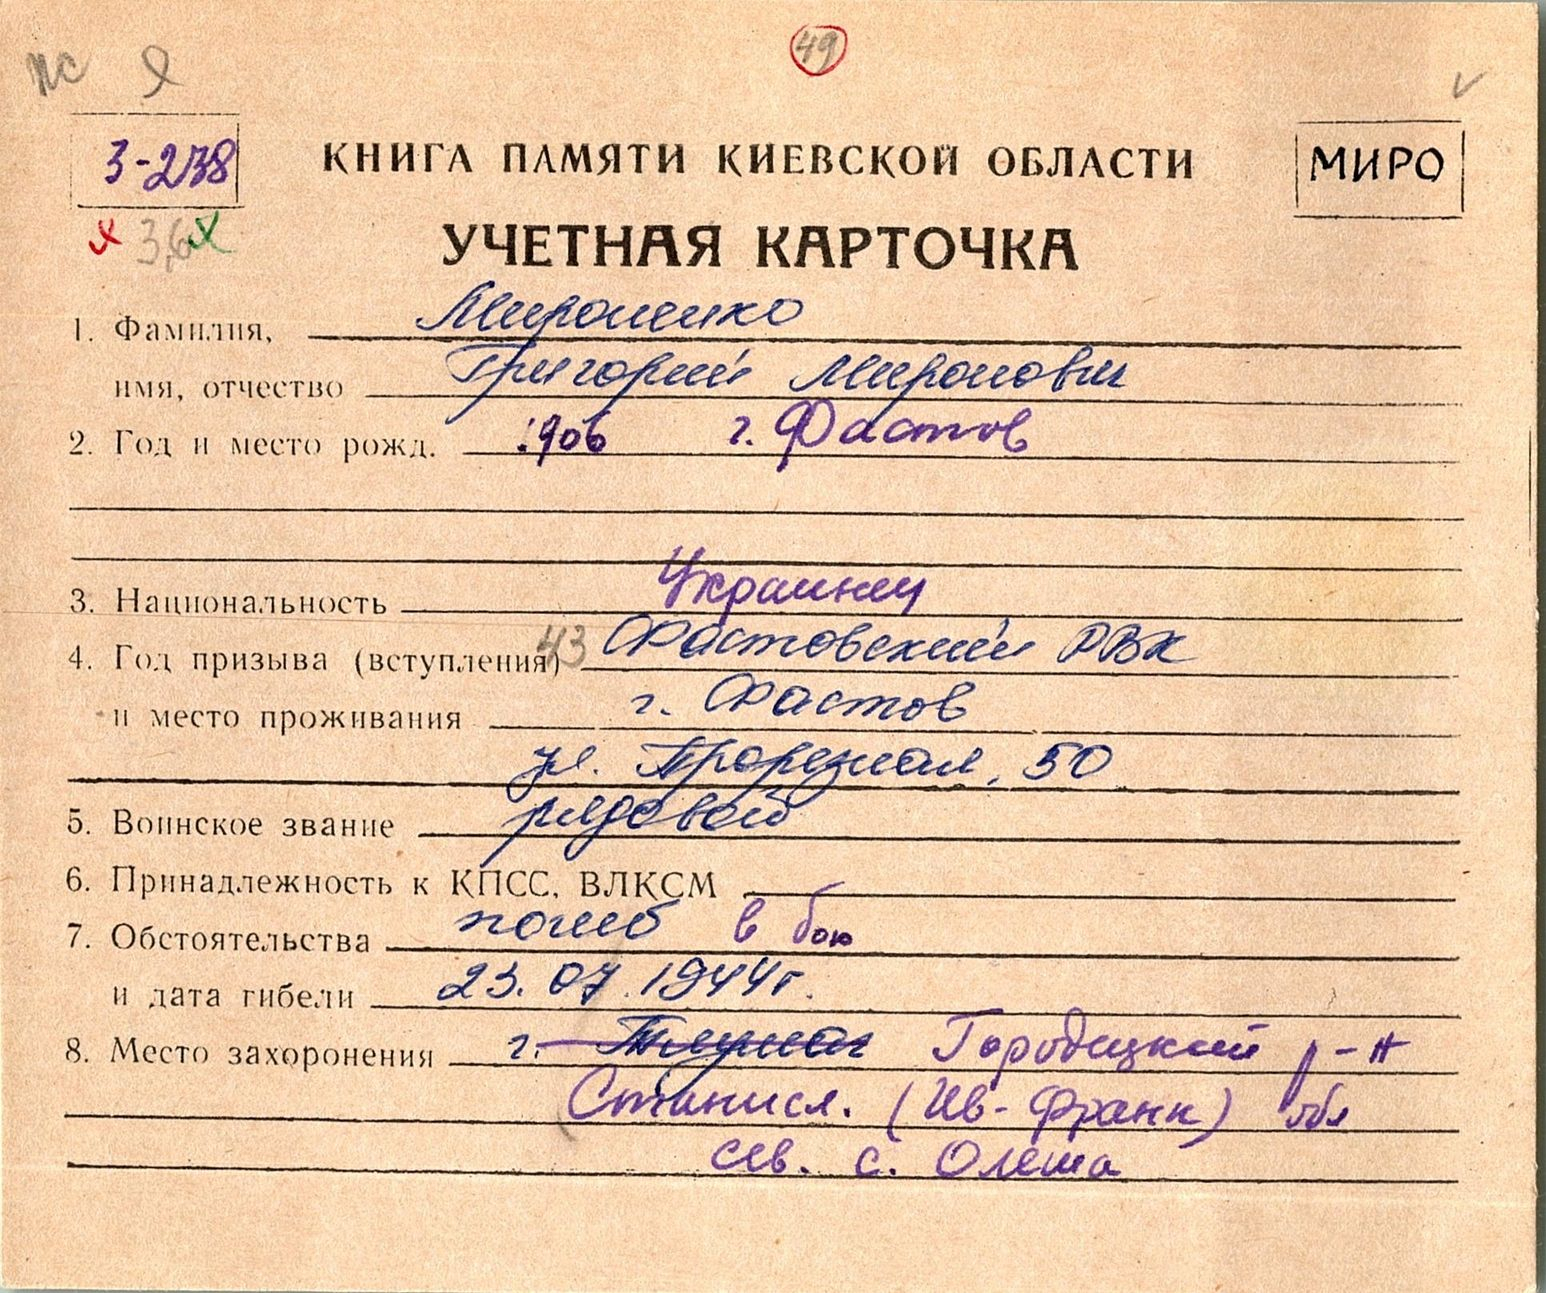 49
ПС
3-238
КНИГА ПАМЯТИ КИЕВСКОЙ ОБЛАСТИ
МИРО
3,6
УЧЕТНАЯ КАРТОЧКА
1. Фамилия, Мироненко
имя, отчество Григорий Миронович
2. Год и место рожд. 1906 г. Фастов
3. Национальность Украинец
4. Год призыва (вступления) 43 Фастовский РВК
и место проживания г. Фастов
ул. Прорезная, 50
5. Воинское звание рядовой
6. Принадлежность к КПСС, ВЛКСМ
7. Обстоятельства погиб в бою
и дата гибели 23.07.1944г.
8. Место захоронения г. Тлумач Городецкий р-н
Станисл. (Ив-Франк) обл
сев. с. Олеша